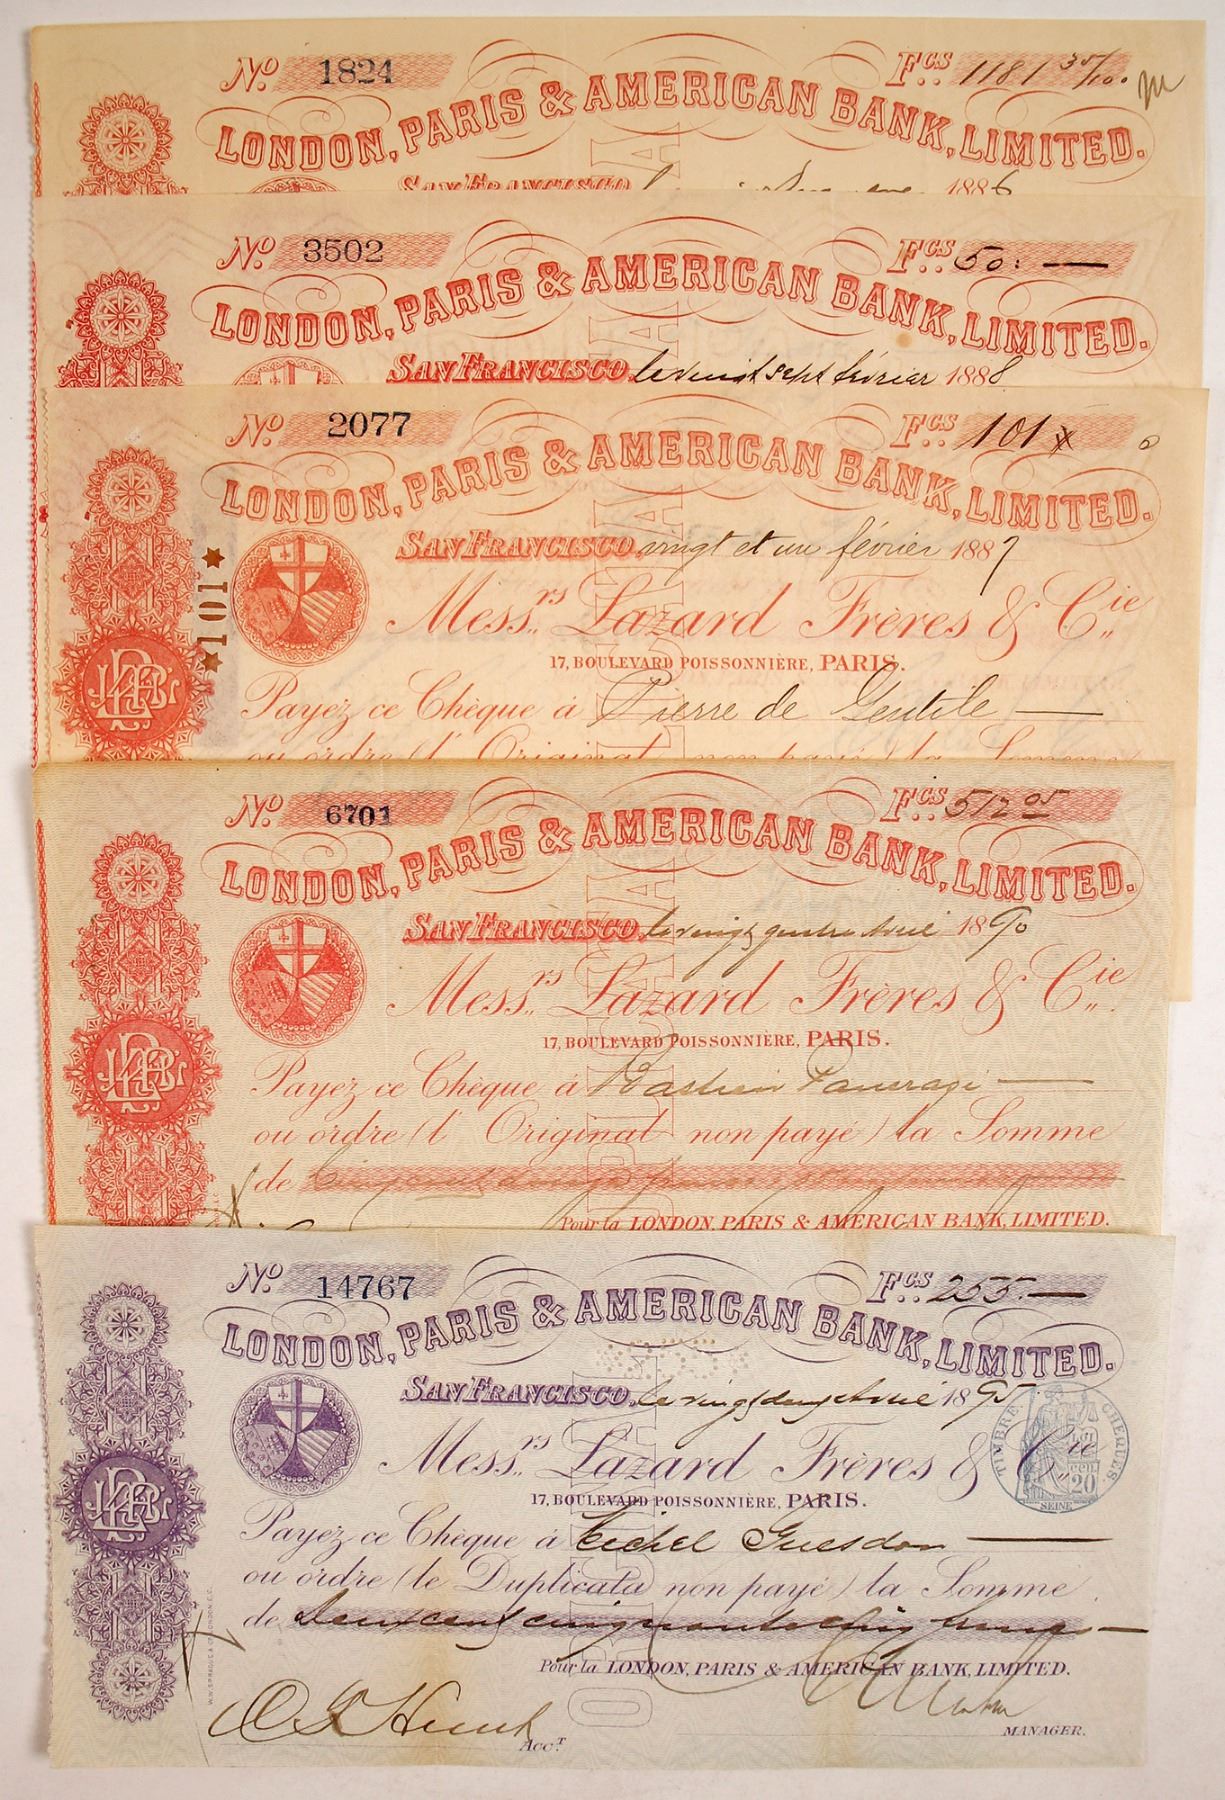 No. 1824 Fcs.. 1181 35/100
LONDON, PARIS & AMERICAN BANK, LIMITED.
SAN FRANCISCO 1886
No. 3502 Fcs.. 50: —
LONDON, PARIS & AMERICAN BANK, LIMITED.
SAN FRANCISCO, le vingt sept février 1888
No. 2077 Fcs.. 101
LONDON, PARIS & AMERICAN BANK, LIMITED.
SAN FRANCISCO, vingt et un février 1887
★101★
Messrs. Lazard Frères & Cie.
17, BOULEVARD POISSONNIÈRE, PARIS.
Payez ce Chèque à Pierre de Gentile —
ou ordre (l' Original non payé) la Somme
No. 6701 Fcs.. 512 05
LONDON, PARIS & AMERICAN BANK, LIMITED.
SAN FRANCISCO, le vingt quatre 1890
Messrs. Lazard Frères & Cie.
17, BOULEVARD POISSONNIÈRE, PARIS.
Payez ce Chèque à Bastien —
ou ordre (l' Original non payé) la Somme
de Cinq cent douze francs
Pour la LONDON, PARIS & AMERICAN BANK, LIMITED.
No. 14767 Fcs.. 255. —
LONDON, PARIS & AMERICAN BANK, LIMITED.
SAN FRANCISCO, le vingt 1895
TIMBRE CHEQUES
20
SEINE
Messrs. Lazard Frères & Cie
17, BOULEVARD POISSONNIÈRE, PARIS.
ORIGINAL
Payez ce Chèque à Michel Guesdon —
ou ordre (le Duplicata non payé) la Somme
de Deux cent cinquante cinq francs —
Pour la LONDON, PARIS & AMERICAN BANK, LIMITED.
Acct.
MANAGER.